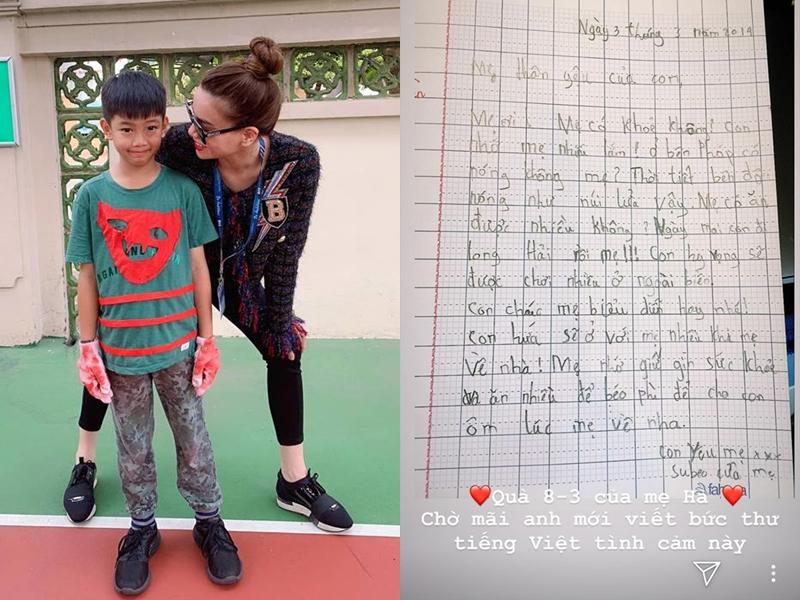 NL
B
Ngày 3 tháng 3 năm 2019
Mẹ thân yêu của con,
Mẹ ơi, Mẹ có khoẻ không! Con
nhớ mẹ nhiều lắm! ở bên Pháp có
nóng không mẹ? Thời tiết bên đây
nóng như núi lửa vậy. Mẹ có ăn
được nhiều không? Ngày mai con đi
Long Hải rồi mẹ!!! Con hy vọng sẽ
được chơi nhiều ở ngoài biển.
Con chúc mẹ biểu diễn hay nhé!
Con hứa sẽ ở với mẹ nhiều khi mẹ
về nhà! Mẹ nhớ giữ gìn sức khoẻ
ăn nhiều để béo phì để cho con
ôm lúc mẹ về nha.
Con yêu mẹ xxx
Subeo của mẹ
❤️Quà 8-3 của mẹ Hà ❤️
Chờ mãi anh mới viết bức thư
tiếng Việt tình cảm này